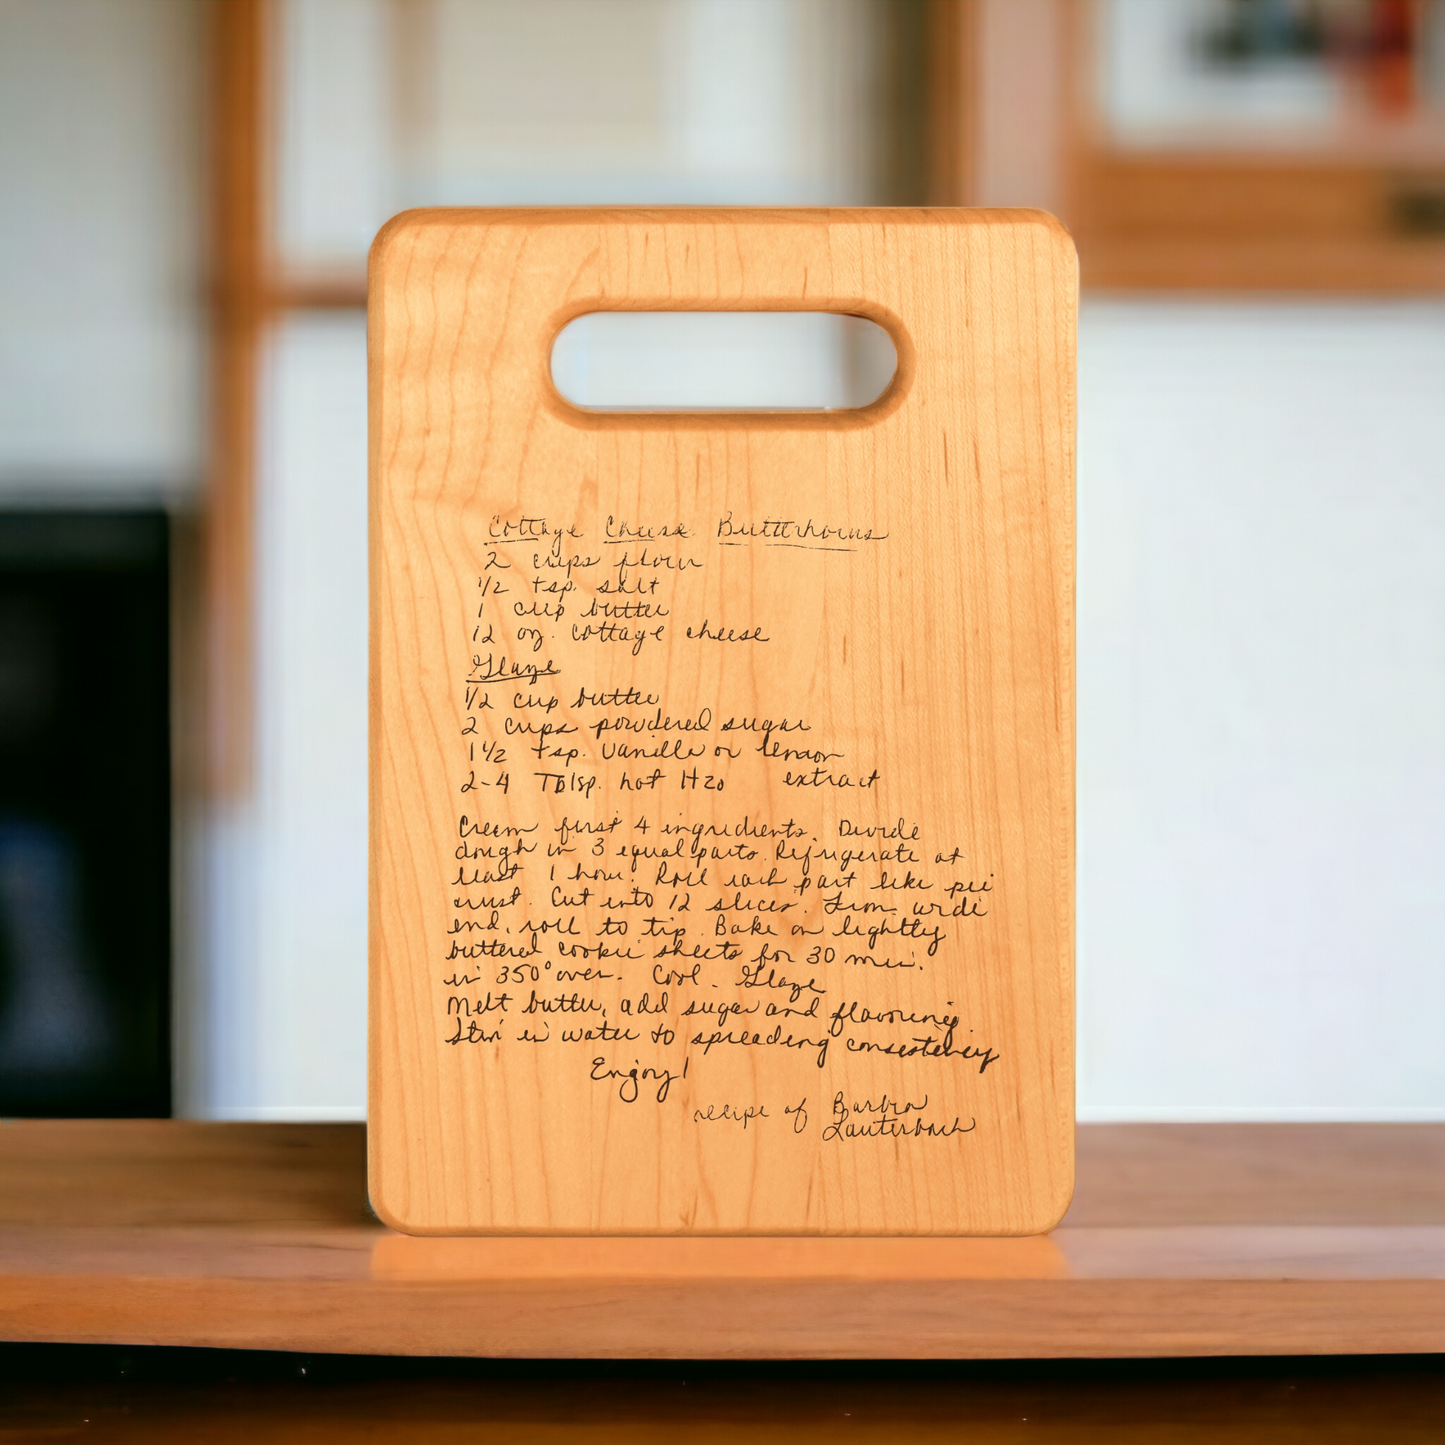 Cottage Cheese Butterhorns
2 cups flour
1/2 tsp. salt
1 cup butter
12 oz. cottage cheese
Glaze
1/2 cup butter
2 cups powdered sugar
1 1/2 tsp. vanilla or lemon
2-4 Tblsp. hot H2o extract
Cream first 4 ingredients. Divide
dough in 3 equal parts. Refrigerate at
least 1 hour. Roll each part like pie
crust. Cut into 12 slices. From wide
end, roll to tip. Bake on lightly
buttered cookie sheets for 30 min.
in 350° oven. Cool. Glaze
Melt butter, add sugar and flavoring
Stir in water to spreading consistency
Enjoy!
recipe of Barbra
Lauterbach